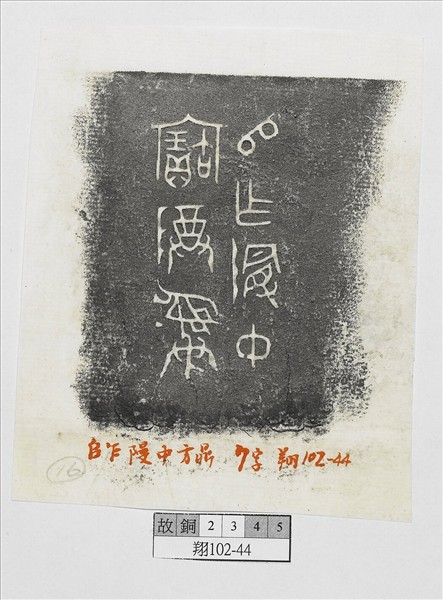 乍 中
寶尊彝
乍 中方鼎 7字 翔102-44
16
故銅2345
翔102-44